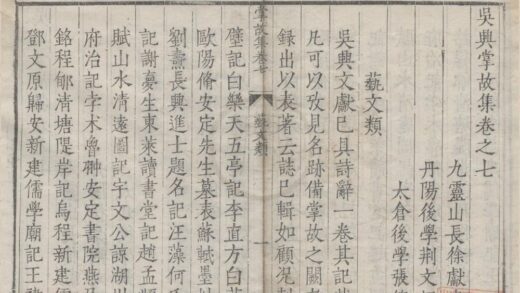 吳興掌故集卷之七
九靈山長徐獻
丹陽後學荆文
太倉後學張
蓺文類
吳興文獻已具詩辭一卷其記
凡可以攷見名跡備掌故之闕
録出以表著云誌已輯如顧况
掌故集卷七 蓺文類 一
壁記白樂天五亭記李直方白
歐陽脩安定先生墓表蘇軾墨
劉燾長興進士題名記汪藻何
記謝夢生東萊讀書堂記趙孟
賦山水清遠圖記宇文公諒湖
府治記孛术魯翀安定書院燕
銘程郇清塘隄岸記烏程新建
鄧文原歸安新建儒學廟記王